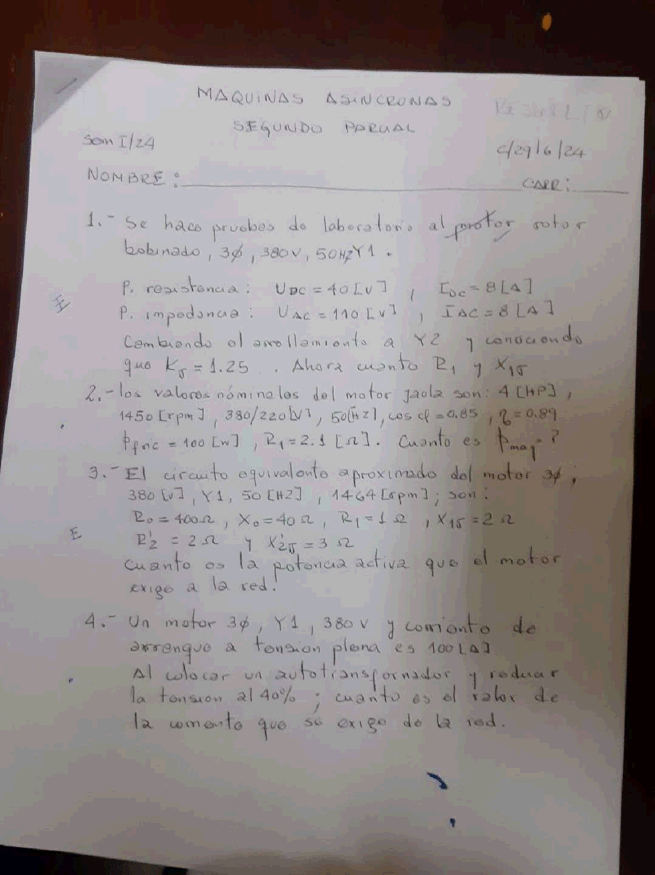 MAQUINAS ASINCRONAS
SEGUNDO PARCIAL
Sem I/24
C/29/6/24
NOMBRE:
CARR:
1.- Se hace pruebas de laboratorio al motor rotor
bobinado, 3ϕ, 380V, 50HZ Y1.
P. resistencia: UDC = 40 [V] , IDC = 8 [A]
P. impedancia: UAC = 110 [V] , IAC = 8 [A]
Cambiando el arrollamiento a Y2 y conociendo
que Kσ = 1.25 . Ahora cuanto R1 y X1σ
2.- los valores nominales del motor jaola son: 4 [HP],
1450 [rpm], 380/220 [V], 50 [HZ], cos φ = 0.85 , η = 0.89
Pfric = 100 [W] , R1 = 2.1 [Ω]. Cuanto es Pmag. ?
3.- El circuito equivalente aproximado del motor 3ϕ,
380 [V], Y1, 50 [HZ] , 1464 [rpm]; son:
R0 = 400 Ω , X0 = 40 Ω , R1 = 1 Ω , X1σ = 2 Ω
R2' = 2 Ω y X2σ' = 3 Ω
Cuanto es la potencia activa que el motor
exige a la red.
4.- Un motor 3ϕ, Y1, 380 V y corriente de
arranque a tension plena es 100 [A]
Al colocar un autotransformador y reducir
la tension al 40% ; cuanto es el valor de
la corriente que se exige de la red.